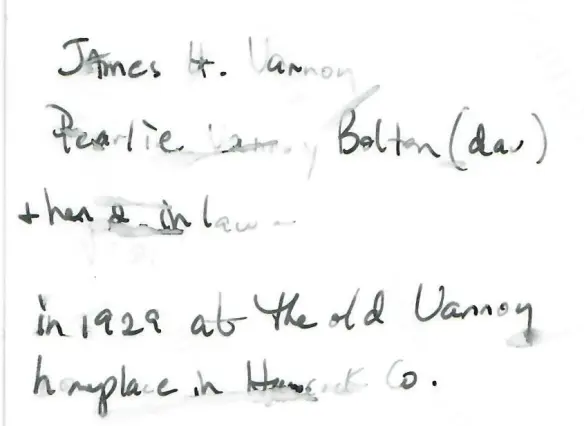 James H. Vannoy
Pearlie Vannoy Bolton (dau)
+ her in law -
in 1929 at the old Vannoy
homeplace in Hancock Co.